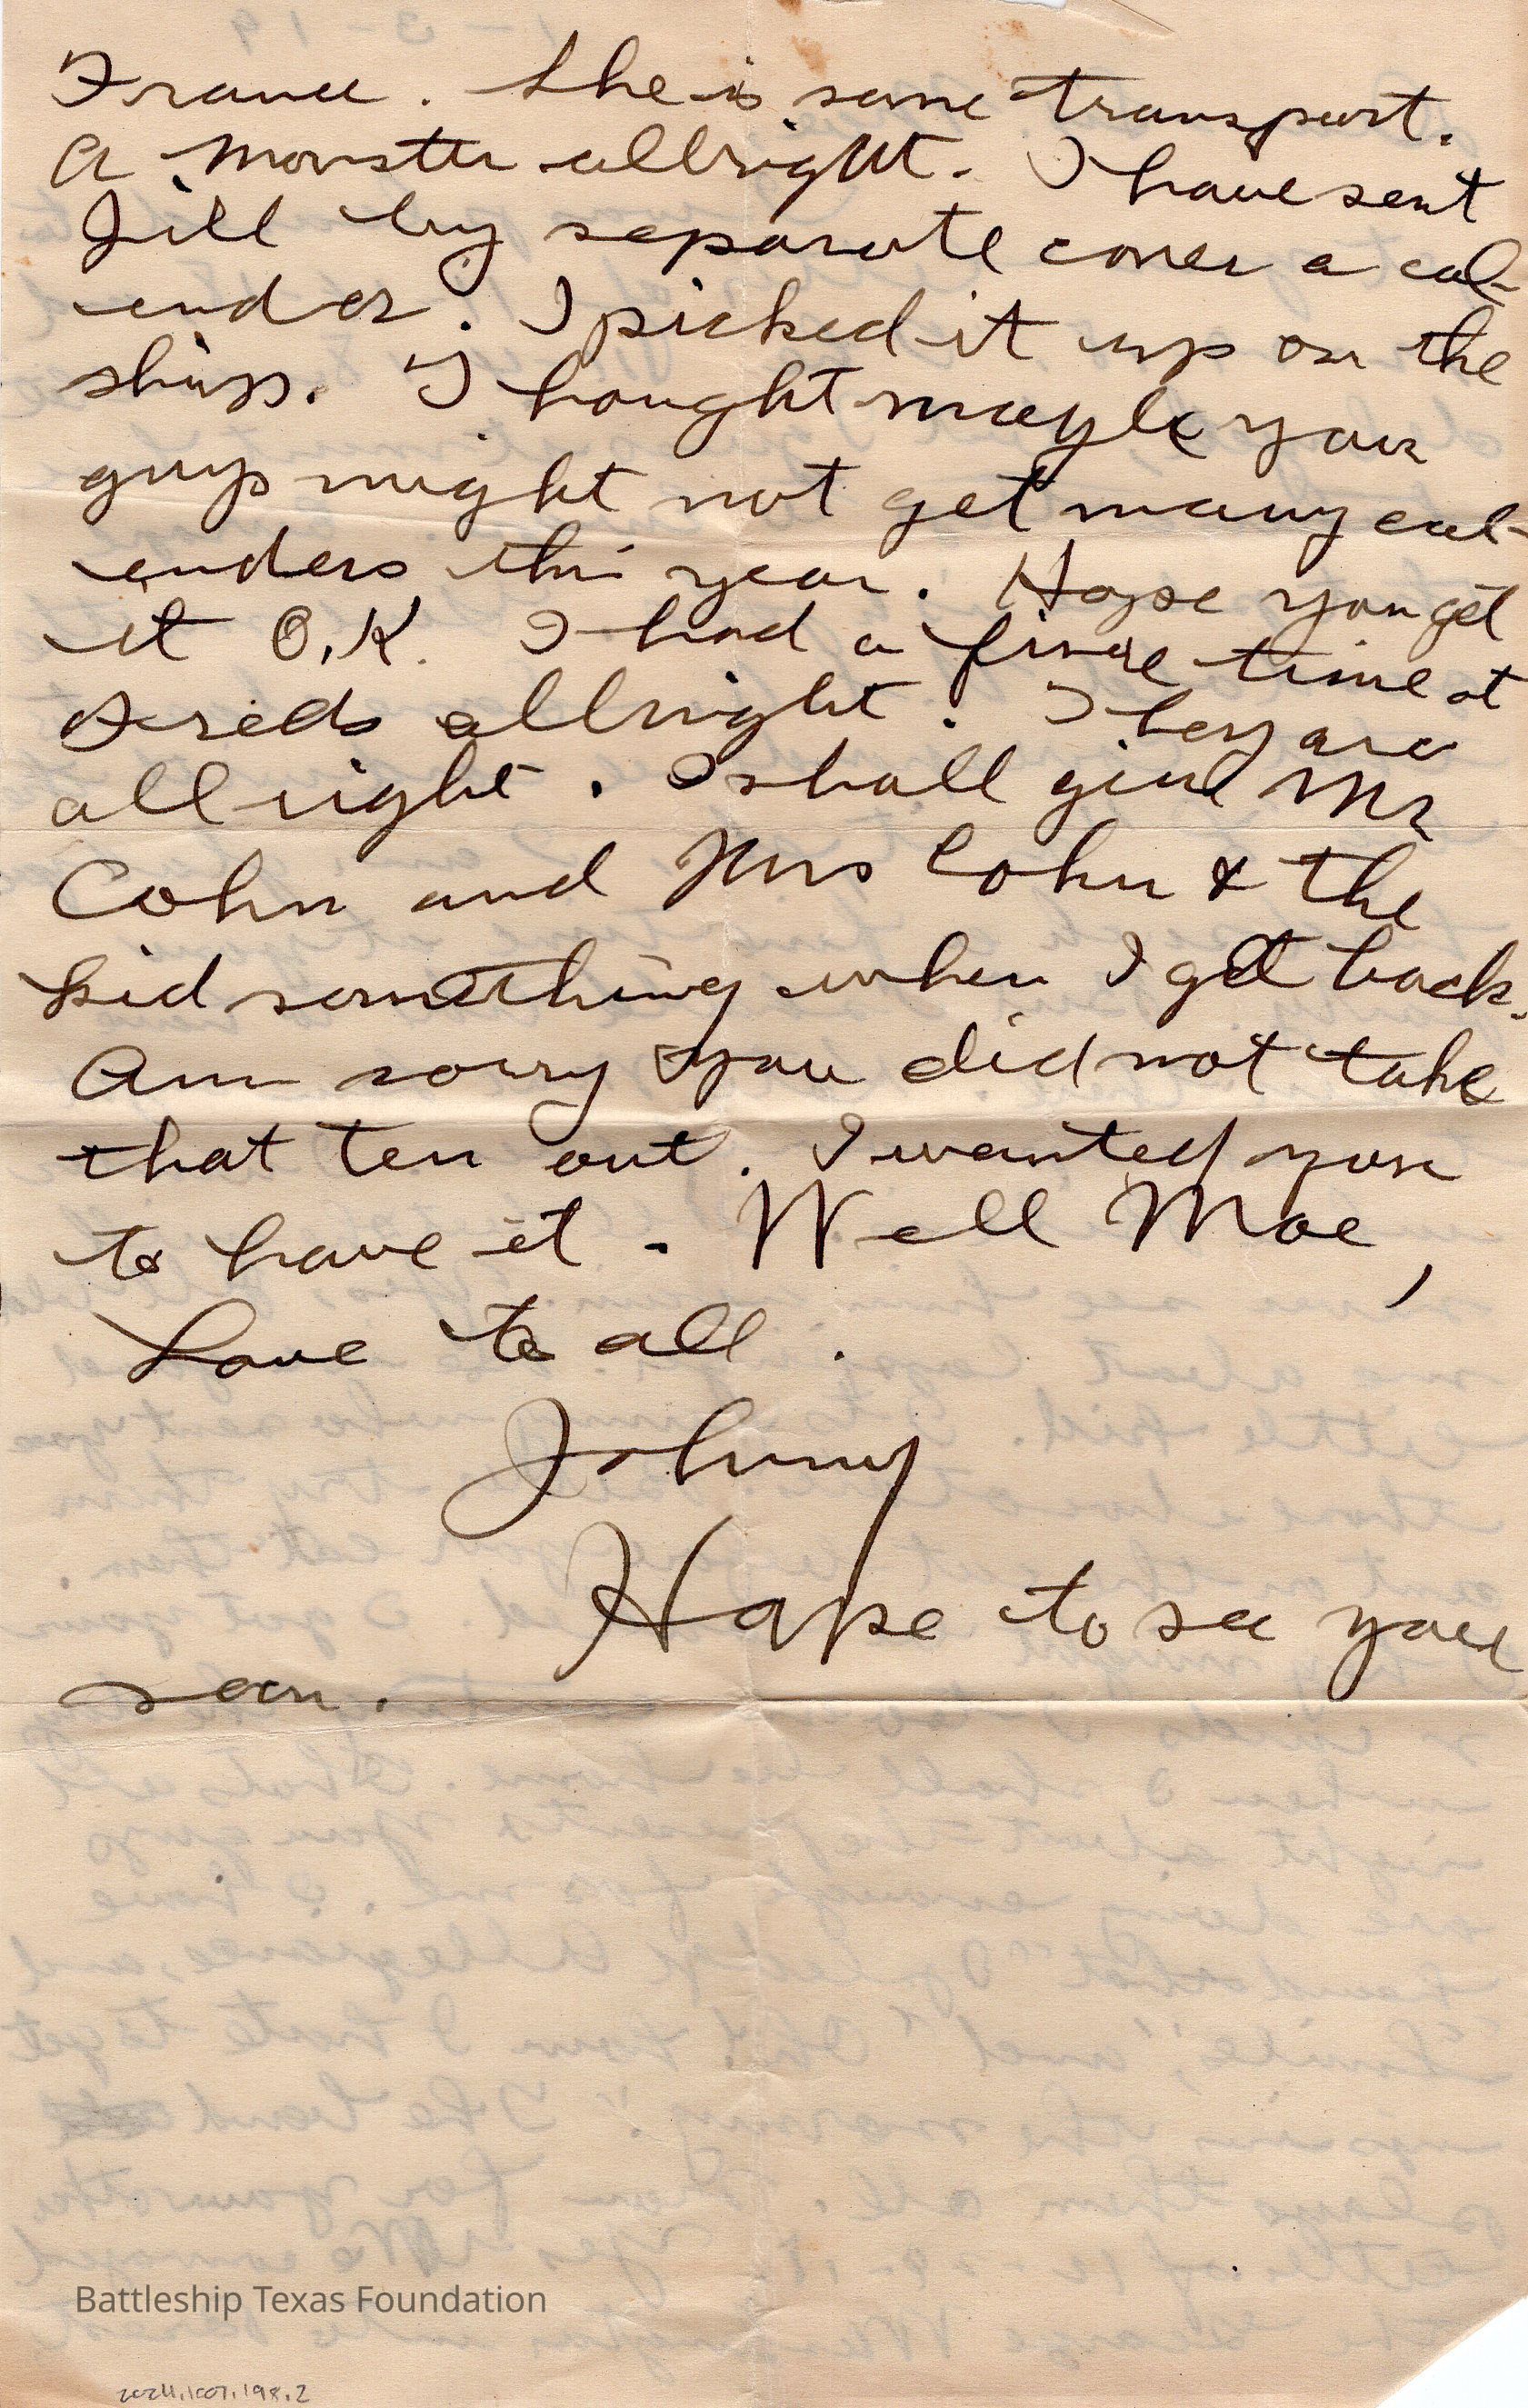 France. She is some transport.
A monster allright. I have sent
Jill by separate cover a cal-
ender. I picked it up on the
ship. Thought maybe you
guys might not get many cal-
enders this year. Hope you get
it O.K. I had a fine time at
Freds allright. They are
all right. I shall give Mr
Cohn and Mrs Cohn & the
kid something when I get back.
Am sorry you did not take
that ten out. I wanted you
to have it. Well Moe,
Love to all.
Johnny
Hope to see you
soon.
Battleship Texas Foundation
2024.1007.198.2